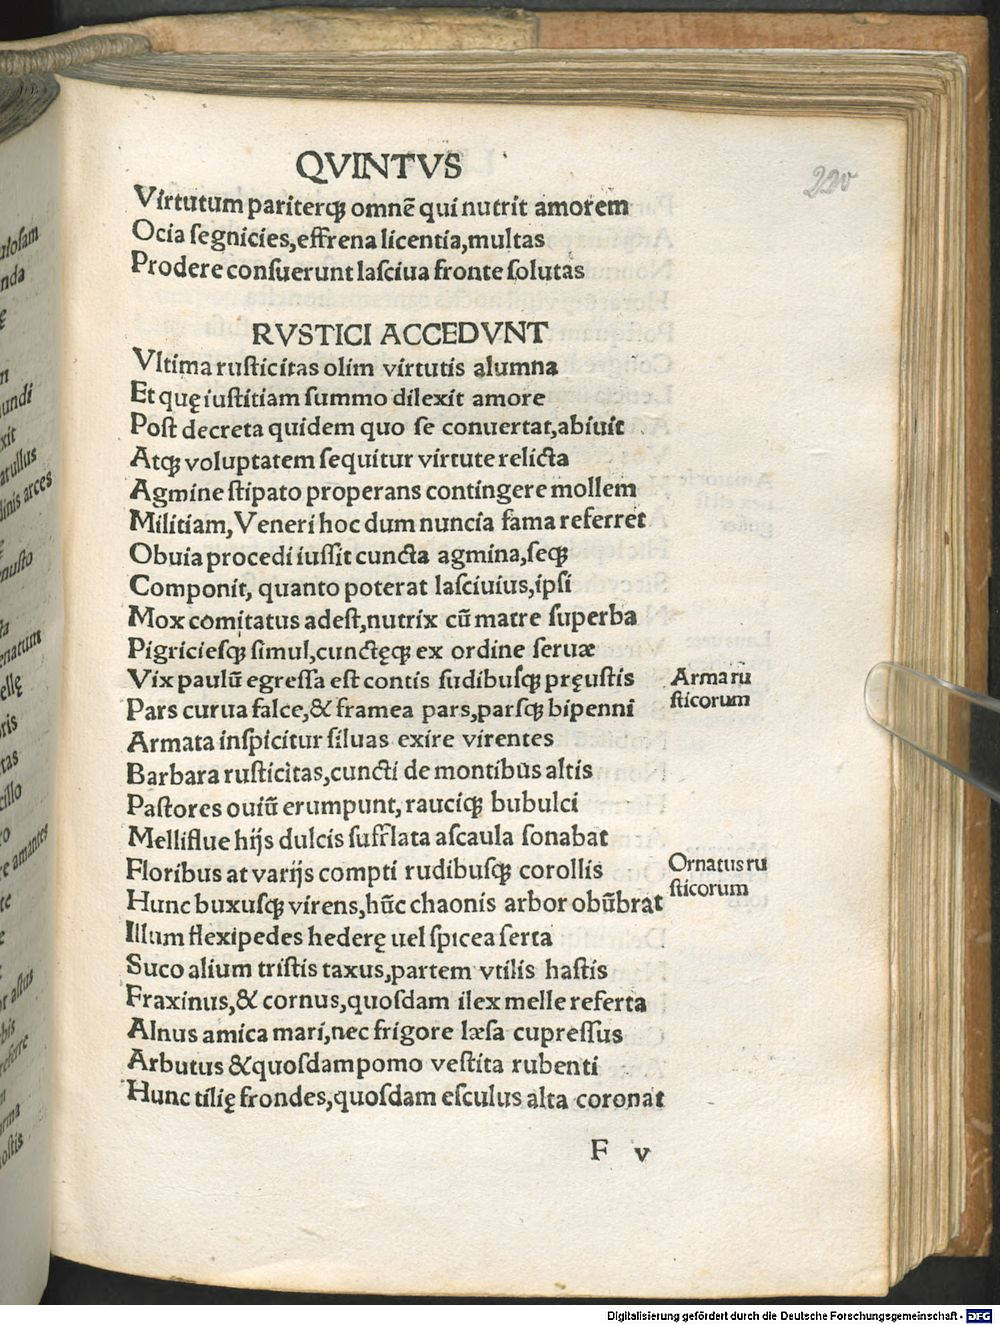 QVINTVS
220
Virtutum pariterqꝫ omnē qui nutrit amorem
Ocia ſegnicies,effrena licentia,multas
Prodere conſuerunt laſciua fronte ſolutas
RVSTICI ACCEDVNT
Vltima ruſticitas olim virtutis alumna
Et quę iuſtitiam ſummo dilexit amore
Poſt decreta quidem quo ſe conuertat,abiuit
Atqꝫ voluptatem ſequitur virtute relicta
Agmine ſtipato properans contingere mollem
Militiam,Veneri hoc dum nuncia fama referret
Obuia procedi iuſſit cuncta agmina,ſeqꝫ
Componit, quanto poterat laſciuius,ipſi
Mox comitatus adeſt,nutrix cū matre ſuperba
Pigricieſqꝫ ſimul,cunctęqꝫ ex ordine ſeruæ
Vix paulū egreſſa eſt contis ſudibuſqꝫ pręuſtis
Arma ru
ſticorum
Pars curua falce,& framea pars,parſqꝫ bipenni
Armata inſpicitur ſiluas exire virentes
Barbara ruſticitas,cuncti de montibus altis
Paſtores ouiū erumpunt, rauciqꝫ bubulci
Melliflue hijs dulcis ſufflata aſcaula ſonabat
Floribus at varijs compti rudibuſqꝫ corollis
Ornatus ru
ſticorum
Hunc buxuſqꝫ virens,hūc chaonis arbor obūbrat
Illum flexipedes hederę uel ſpicea ſerta
Suco alium triſtis taxus,partem vtilis haſtis
Fraxinus,& cornus,quoſdam ilex melle referta
Alnus amica mari,nec frigore læſa cupreſſus
Arbutus & quoſdam pomo veſtita rubenti
Hunc tilię frondes,quoſdam eſculus alta coronat
F v
Digitalisierung gefördert durch die Deutsche Forschungsgemeinschaft - DFG